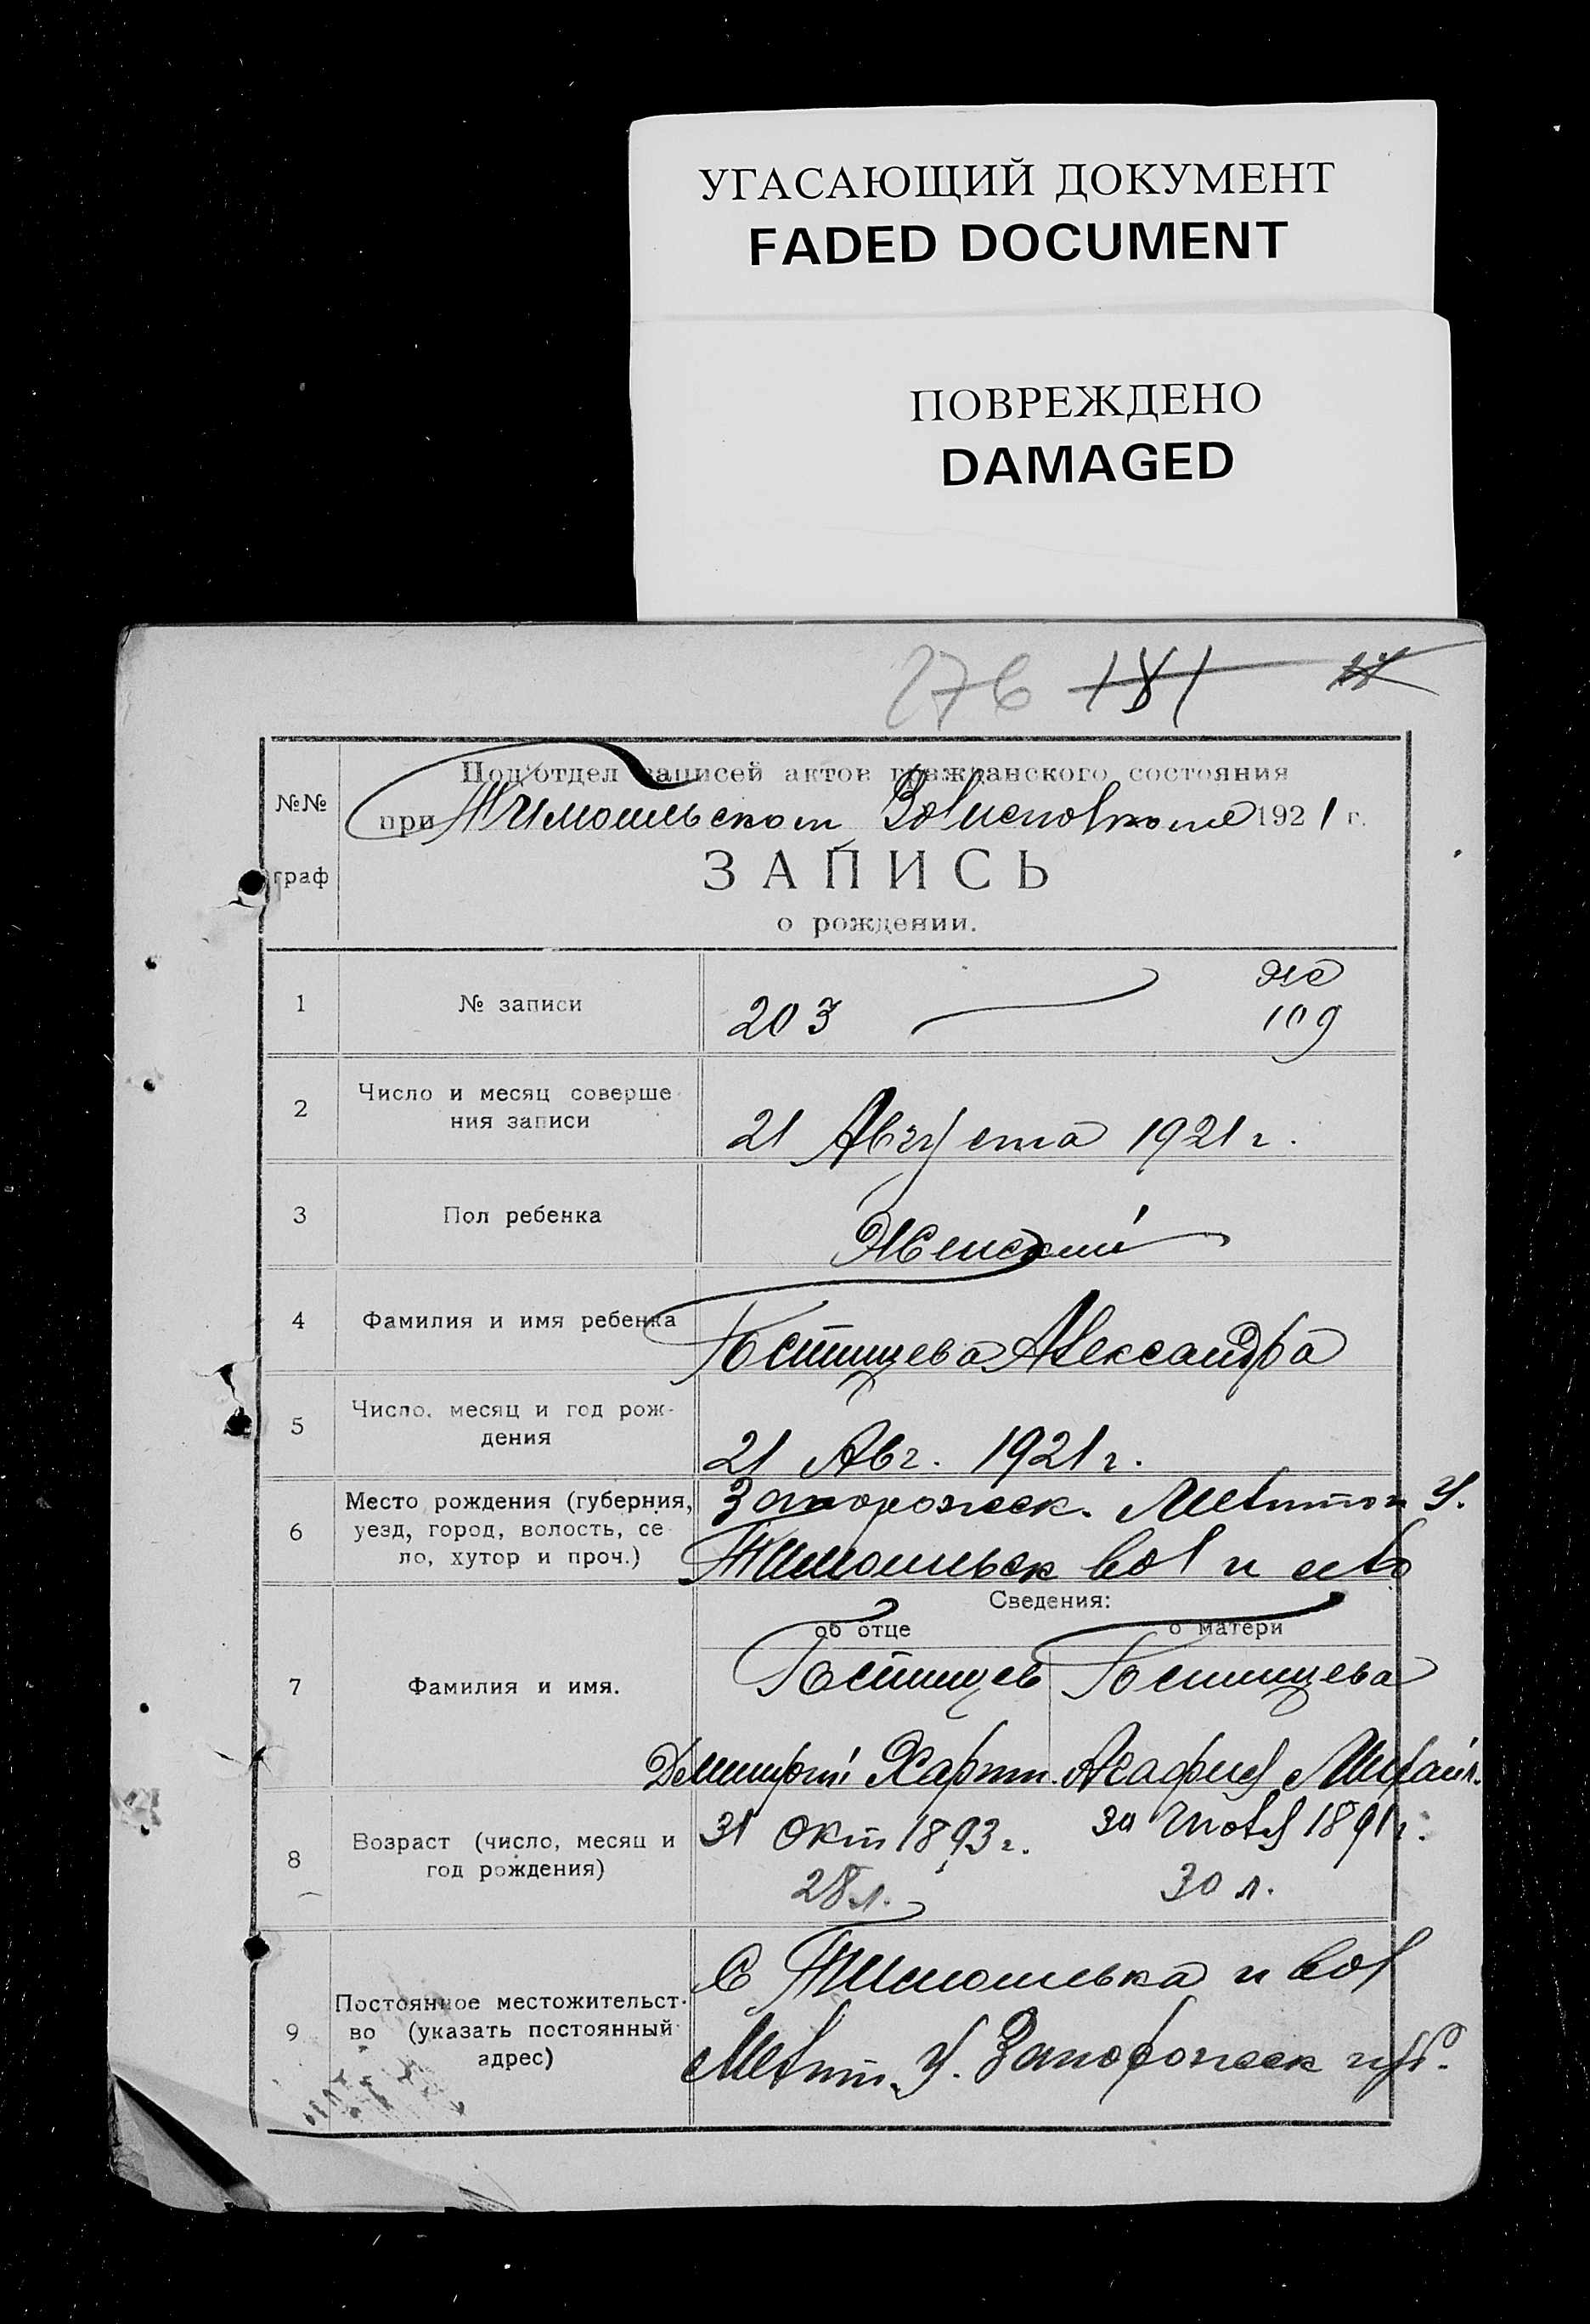 УГАСАЮЩИЙ ДОКУМЕНТ
FADED DOCUMENT
ПОВРЕЖДЕНО
DAMAGED
276 181
№№ граф
Под'отдел записей актов гражданского состояния
при Тимошьском Волисполкоме 1921 г.
ЗАПИСЬ
о рождении.
1 № записи 203 ж 109
2 Число и месяц соверше
ния записи 21 Августа 1921 г.
3 Пол ребенка Женский
4 Фамилия и имя ребенка Костищева Александра
5 Число, месяц и год рож-
дения 21 Авг. 1921 г.
6 Место рождения (губерния, Запорожск. Мелитоп У.
уезд, город, волость, се Тимошьск вол и село
ло, хутор и проч.)
Сведения:
об отце о матери
7 Фамилия и имя. Костищев Костищева
Дмитрий Харит. Агафия Михайл.
8 Возраст (число, месяц и 31 Окт 1893 г. 30 Июля 1891 г.
год рождения) 28 л. 30 л.
9 С Тимошьвка и вол
Постоянное местожительст-
во (указать постоянный Мелит. У. Запорожск губ.
адрес)